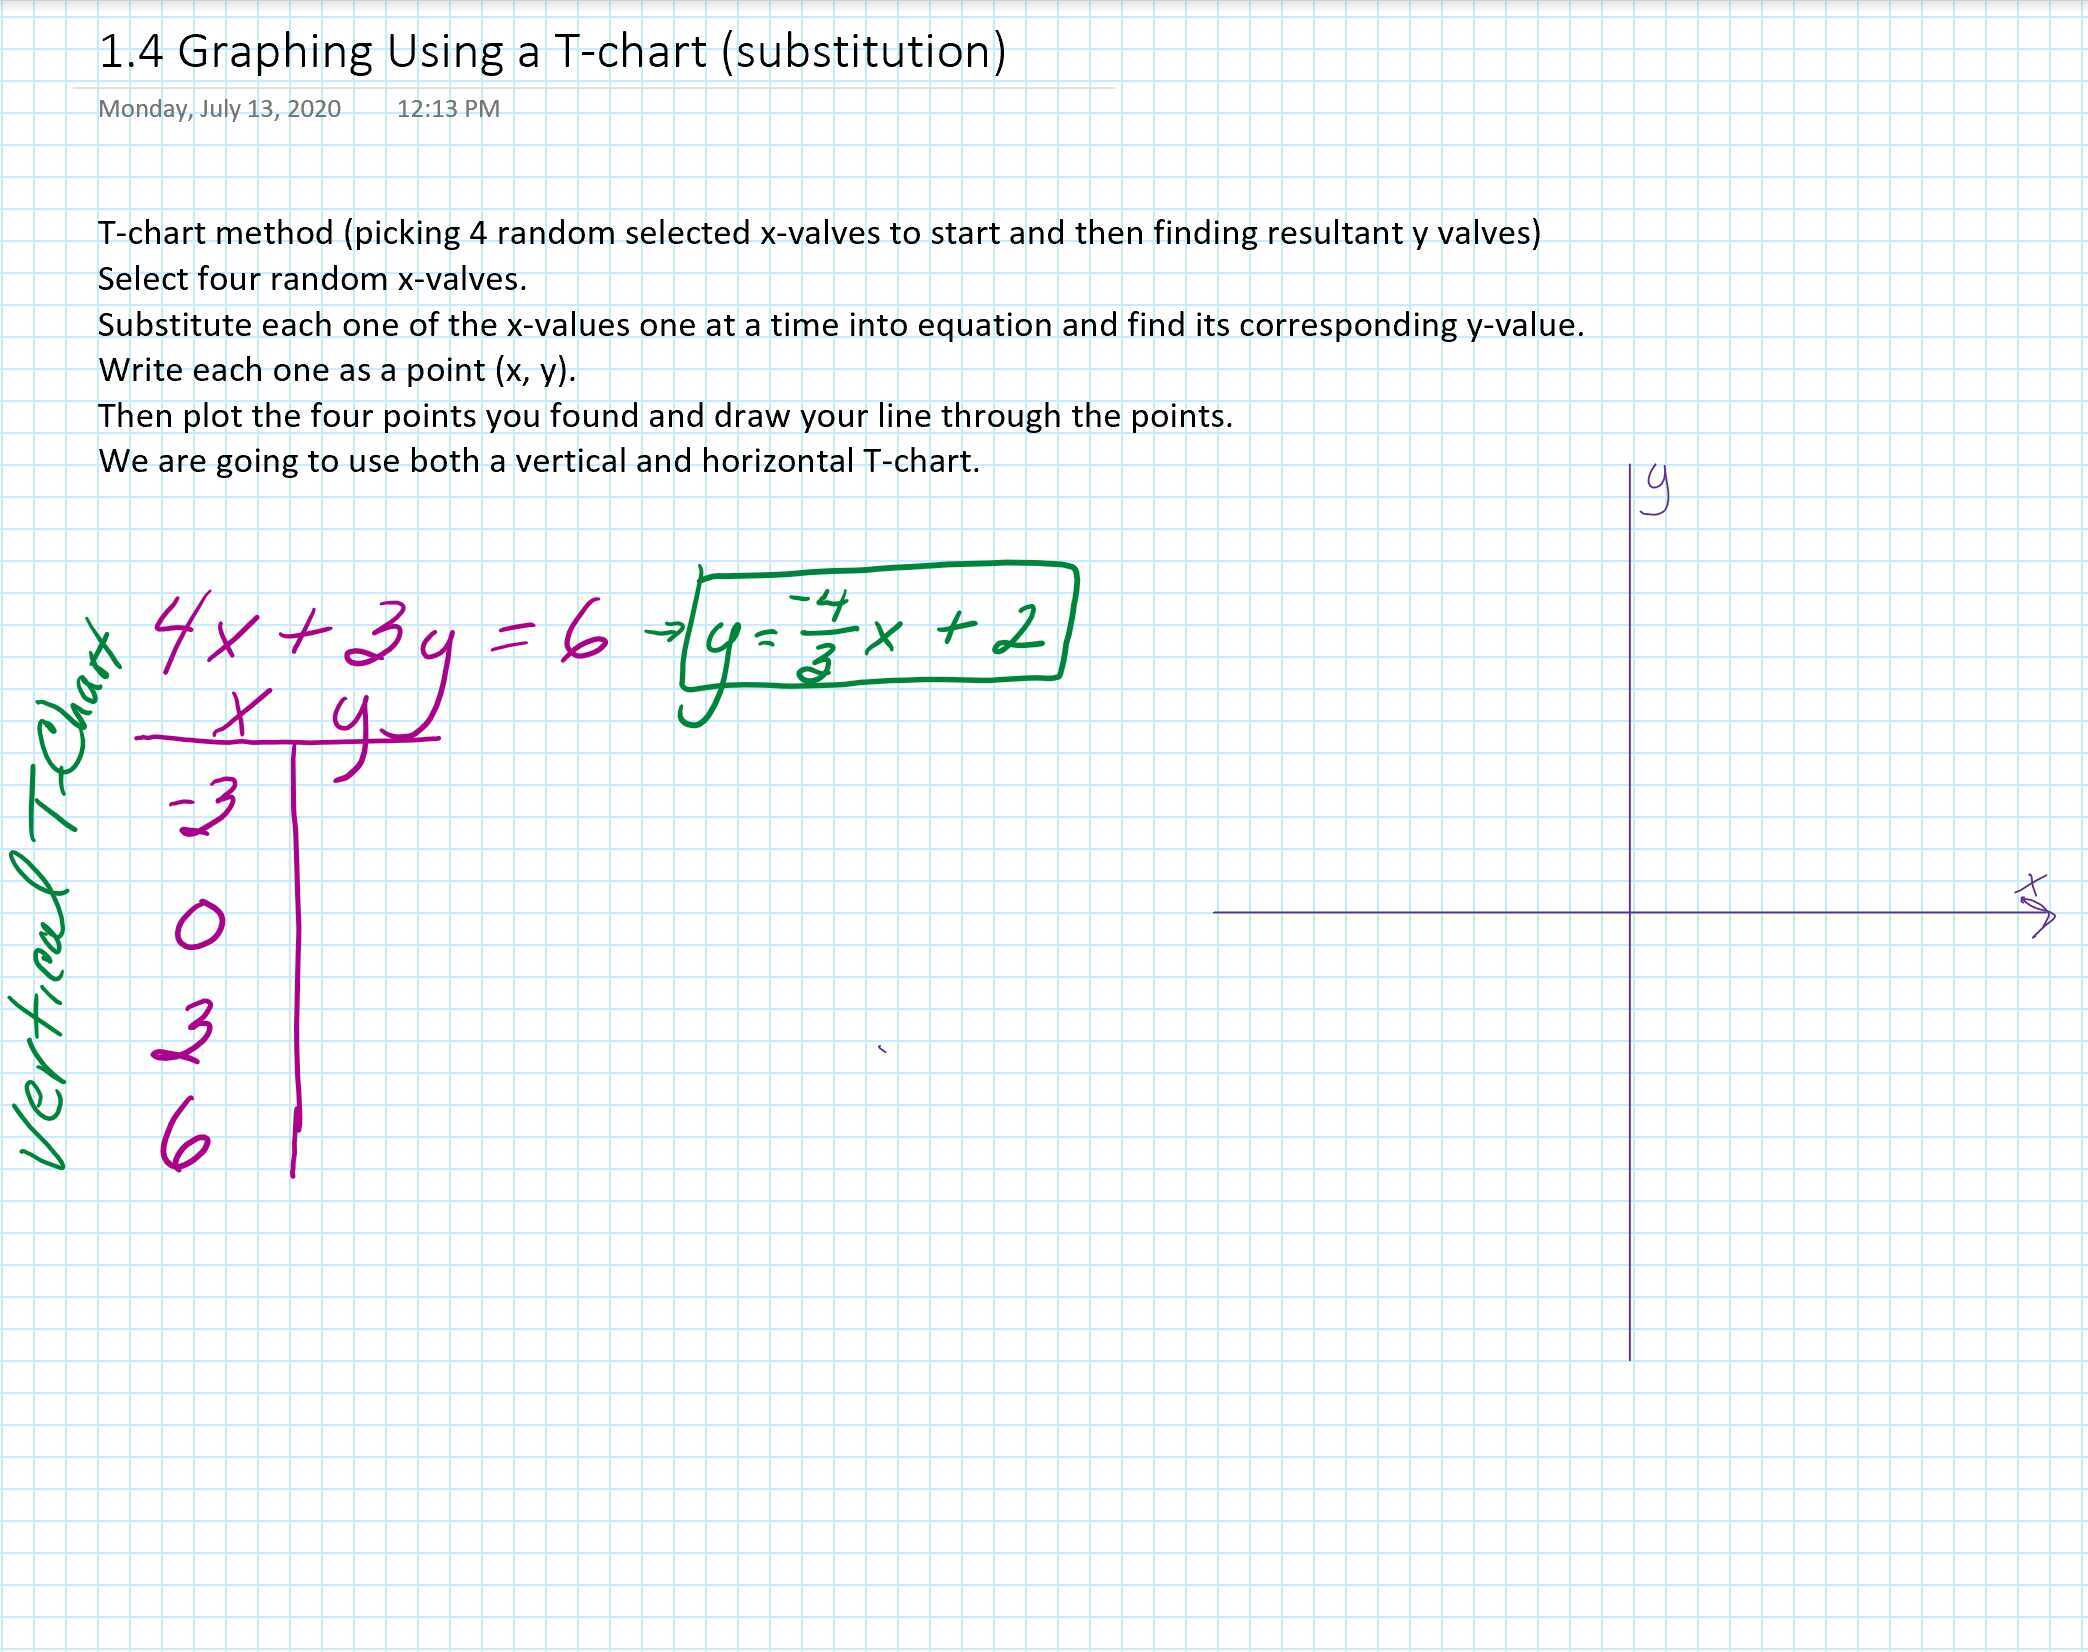 1.4 Graphing Using a T-chart (substitution)
Monday, July 13, 2020 12:13 PM
T-chart method (picking 4 random selected x-valves to start and then finding resultant y valves)
Select four random x-valves.
Substitute each one of the x-values one at a time into equation and find its corresponding y-value.
Write each one as a point (x, y).
Then plot the four points you found and draw your line through the points.
We are going to use both a vertical and horizontal T-chart.
4x + 3y = 6 → y = -4/3 x + 2
Vertical T-Chart
x y
-3
0
3
6
y
x